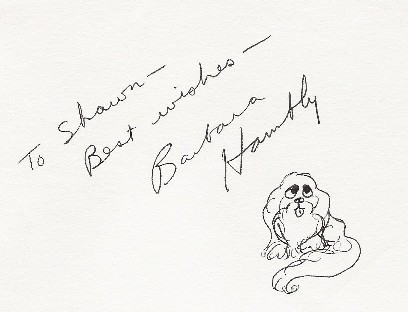 To Shawn—
Best wishes—
Barbara
Hambly